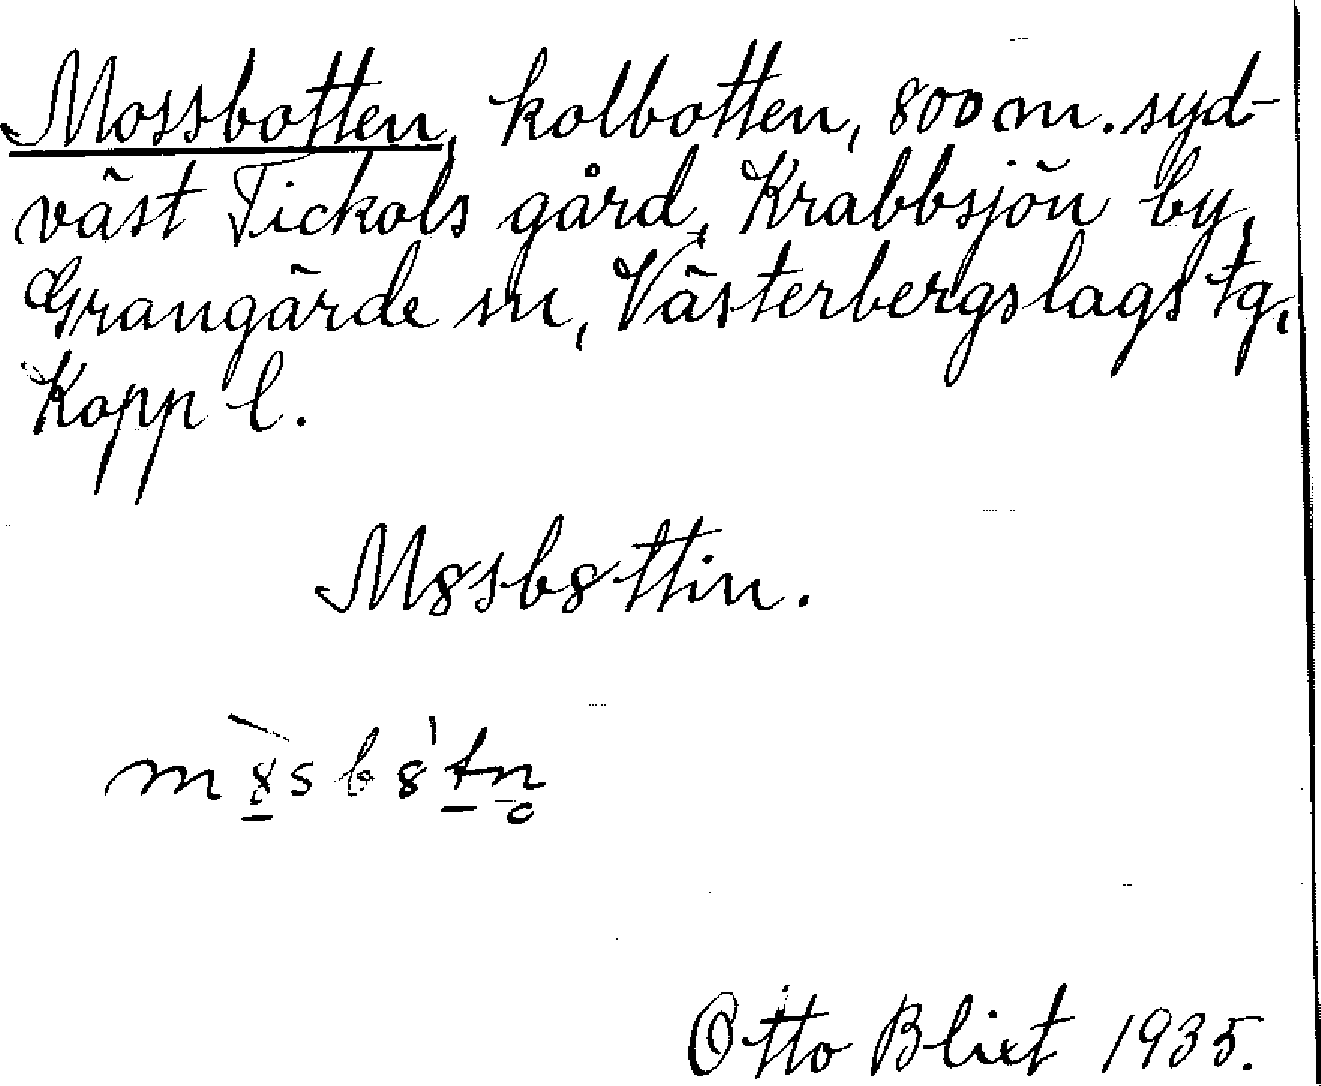 Mossbotten, kolbotten, 800 m. syd-
väst Tickols gård, Krabbsjön by,
Grangärde sn, Västerbergslags tg,
Kopp l.
M8sb8ttin.
m8̱̀sb8'ṯn̥
Otto Blixt 1935.